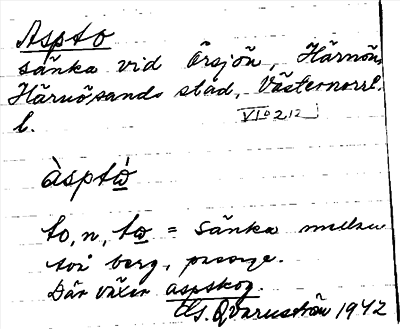 Aspto
sänka vid Örsjön, Härnön,
Härnösands stad, Västernorrl.
l.
VI 2 12
àsptò
to, n, to = sänka mellan
två berg, passage.
Där växer aspskog.
Gs. Qvarnström 1942